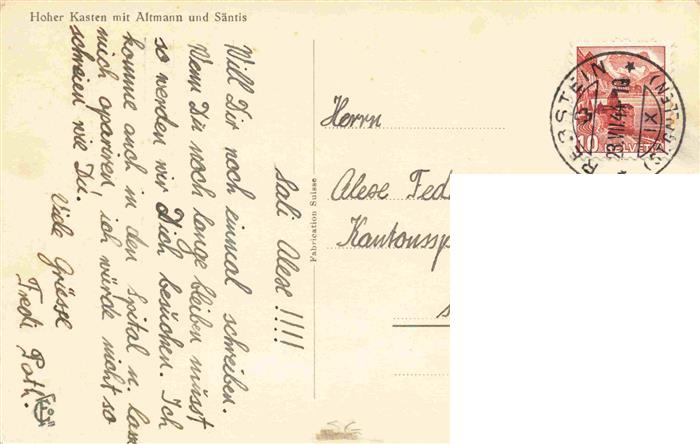 Hoher Kasten mit Altmann und Säntis
Sali Alese !!!!
Will Dir noch einmal schreiben.
Wenn Du noch lange bleiben müsst
so werden wir Dich besuchen. Ich
komme auch in den Spital u. lass
mich operieren, ich würde nicht so
schreien wie Du.
Viele Grüsse
Fredi
Fabrication Suisse
Herrn
Alese Fed
Kantonssp
S.G.
REBSTEIN
(ST. GALLEN)
XI
28.VII.44
10
HELVETIA